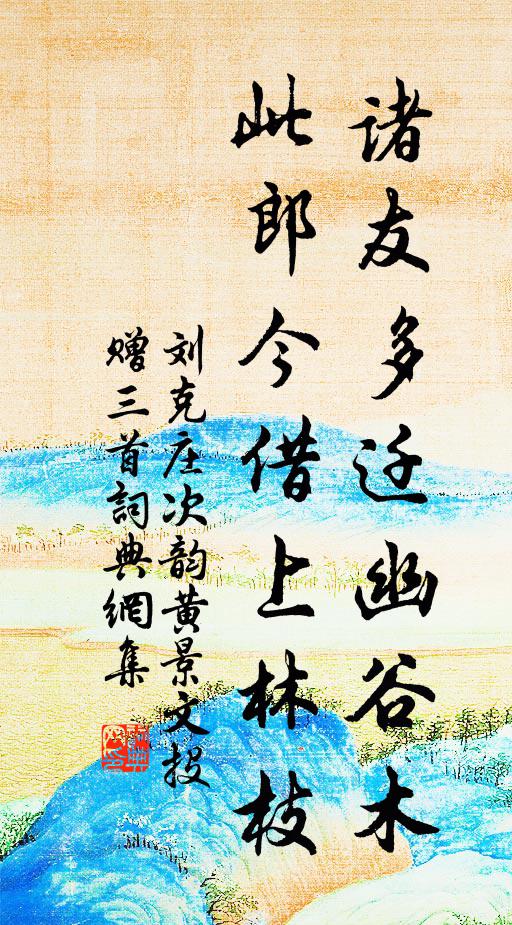 诸友多迁幽谷木
此郎今借上林枝
刘克庄次韵黄景文投
赠三首詞典網集